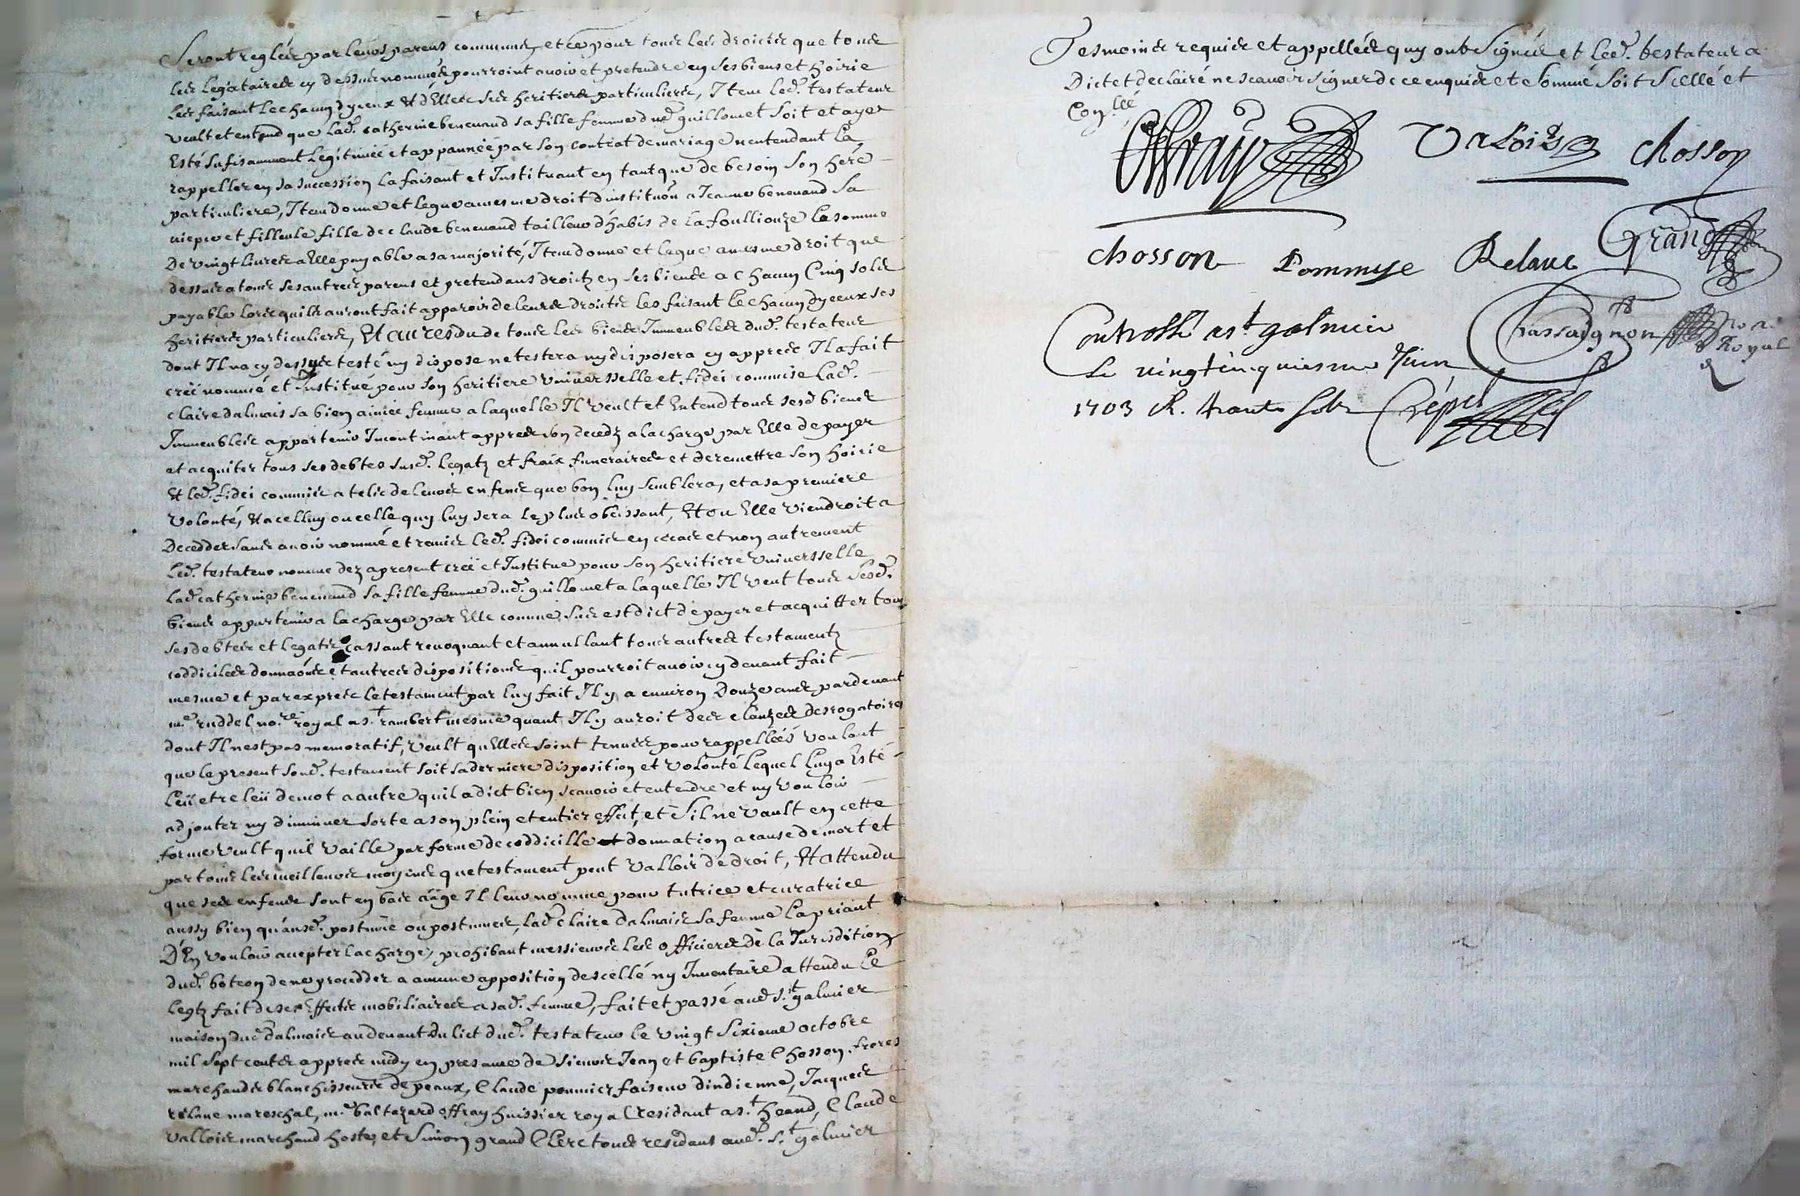 Seront reglée par leurs parens communs, et ce pour tous les droicts que tous
les legataires cy dessus nommés pourroint avoir et pretendre en ses biens et hoirie
les faisant le chacun d'yceux et d'Elles ses heritiers particuliers, Item led. testateur
veult et entend que lad. catherine benevand sa fille femme dud. guillomet soit et aye
Esté sufisamment Legitimée et appannée par son contrat de mariage n'entendant La
rappeller en sa succession La faisant et Instituant en tant que de besoin son here
particuliere, Item donne et legue a mesme droit d'institution a Jeanne benevand sa
niepce et filleule fille de claude benevand tailleur d'habis de La foullouze La somme
De vingt livres a Elle payable a sa majorité, Item donne et legue a mesme droit que
dessus a tous ses autres parens et pretendans droictz en ses biens a chacun Cinq solz
payable lors quils auront fait apparoir de leurs droicts les faisant le chacun d'yceux ses
heritiers particuliers, Et au residu de tous les biens Immeubles dud. testateur
dont Il n'a cy dessus testé ny dispose ne testera ny disposera cy apprés Il a fait
creé nommé et Institué pour son heritiere universelle et fidei commise Lad.
Claire dalmais sa bien aimée femme a laquelle Il veult et Entend tous sesd. biens
Immeubles appartenir Incontinant appres son decedz a la charge par Elle de payer
et acquiter tous ses debtes susd. legatz et fraix funeraires et de remettre son hoirie
Et led. fidei commis a telz de leurs enfens que bon luy semblera, et a sa premiere
volonté, Et a celluy ou celle quy luy sera le plus obeissant, Et ou Elle viendroit a
Decedder sans avoir nommé et remis led. fidei commis en ce cas et non autrement
Led. testateur nomme dez apresent creé et Institue pour son heritiere universselle
Lad. catherine benevand sa fille femme dud. guillomet a laquelle Il veut tous sesd.
biens appartenir a la charge par Elle comme sus est dict de payer et acquitter tous
ses debtes et legatz cassant revoquant et annullant tous autres testamentz
coddiciles donnaons et autres dispositions quil pourroit avoir cy devant fait
mesme et par exprès le testament par luy fait Il y a environ Douze ans par devant
me. ruddel nore. royal a st. rambert mesme quant Il y auroit des clauzes desrogatoires
dont Il n'est pas memoratif, veult qu'Elles soint tenues pour rappellées voulant
que le present sond. testament soit sa derniere disposition et volonté Lequel Luy a Esté
Leü et releü de mot a autre qu'il a dict bien scavoir et entendre et ny vouloir
adjouter ny diminuer sorte a son plein et entier effect, et S'il ne vault en cette
forme veult quil vaille par forme de coddicille et donnation a cause de mort et
par tous les meilleurs moyens que testament peut valloir de droit, Et attendu
que ses enfens sont en bas âage Il leur nomme pour tutrice et curatrice
aussy bien qu'ausd. postume ou postumes, Lad. claire dalmais sa femme La priant
D'En vouloir accepter la charge, prohibant messieurs les officiers de la Jurisdition
dud. boteon de ne procedder a aucune apposition de scellé ny Inventaire attendu Le
Legtz fait de ses Effects mobiliaires a sad. femme, fait et passé aud. st. galmier
maison dud. dalmais au devant du lict dud. testateur le vingt sixiéme octobre
mil sept centz appres midy en presance de sieurs Jean et baptiste Chosson freres
marchandz blanchisseurs de peaux, Claude pommier faiseur d'indienne, Jacques
relave mareschal, me. baltazard effray huissier royal residant a st. heand, Claude
valloir marchand hoste, et Simon grand Clerc tous residans aud. st. galmier
Tesmoins requis et appellés quy ont Signés et led. testateur a
Dict et declairé ne scavoir signer de ce enquis et sommé, soit scellé et
Con.llé
Effray Valois Chosson
Chosson Pommye Relave Grand
Controllé a st galmier Chassaignon nore Royal
Le vingtcinquiesme Juin
1703 R. trante solz Crépet